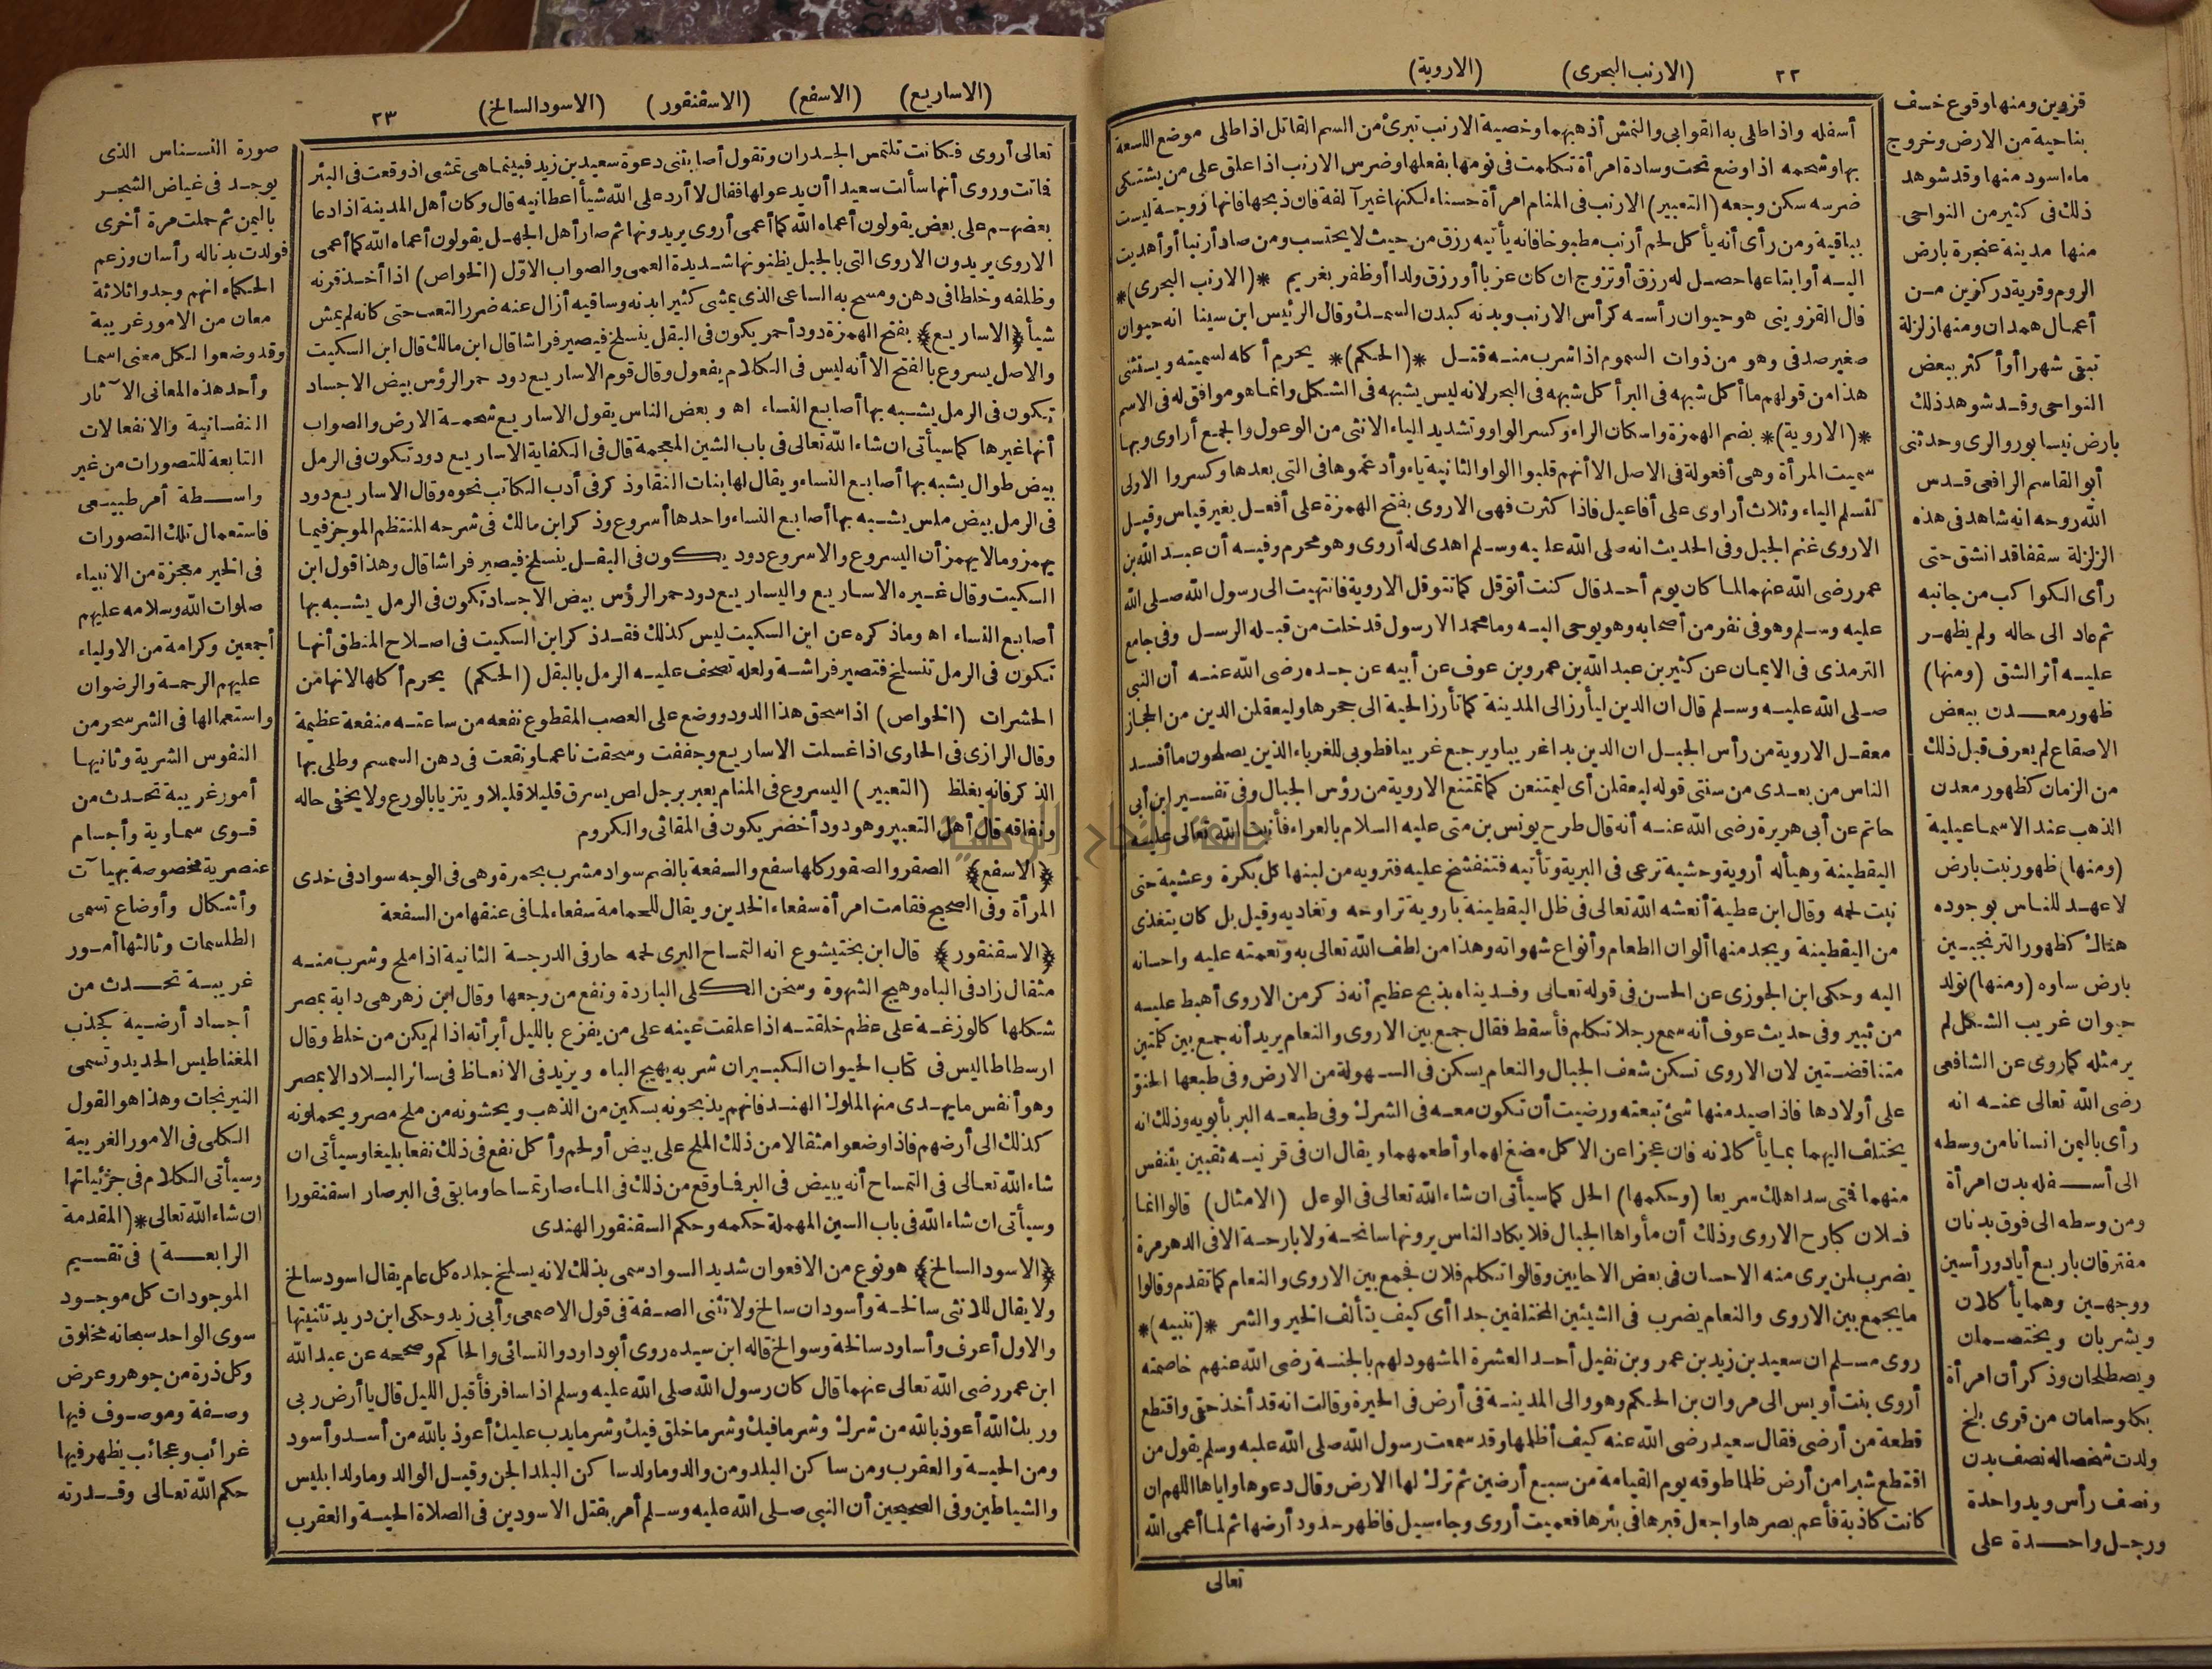 ٢٢
(الارنب البحرى)
(الاروية)
أسفله واذا طلى به القوابى والنمش أذهبهما وخصية الارنب تبرئ من السم القاتل اذا طلى موضع اللسعة
بها وشحمه اذا وضع تحت وسادة امرأة تكلمت فى نومها بفعلها وضرس الارنب اذا علق على من يشتكى
ضرسه سكن وجعه (التعبير) الارنب فى المنام امرأة حسناء لكنها غير آلفة فان ذبحها فانها زوجة ليست
بباقية ومن رأى أنه يأكل لحم أرنب مطبوخا فانه يأتيه رزق من حيث لا يحتسب ومن صاد أرنبا أو أهديت
اليه أو ابتاعها حصل له رزق أو تزوج ان كان عزبا أو رزق ولدا أو ظفر بغريم *(الارنب البحرى)*
قال القزوينى هو حيوان رأسه كرأس الارنب وبدنه كبدن السمك وقال الرئيس ابن سينا انه حيوان
صغير صدفى وهو من ذوات السموم اذا شرب منه قتل *(الحكم)* يحرم أكله لسميته ويستثنى
هذا من قولهم ما أكل شبهه فى البر أكل شبهه فى البحر لانه ليس يشبهه فى الشكل وانما هو موافق له فى الاسم
*(الاروية)* بضم الهمزة واسكان الراء وكسر الواو وتشديد الياء الانثى من الوعول والجمع أراوى وبها
سميت المرأة وهى أفعولة فى الاصل الا أنهم قلبوا الواو الثانية ياء وأدغموها فى التى بعدها وكسروا الاولى
لتسلم الياء وثلاث أراوى على أفاعيل فاذا كثرت فهى الاروى بفتح الهمزة على أفعل بغير قياس وقيل
الاروى غنم الجبل وفى الحديث انه صلى الله عليه وسلم اهدى له أروى وهو محرم وفيه أن عبد الله بن
عمر رضى الله عنهما لما كان يوم أحد قال كنت أتوقل كما تتوقل الاروية فانتهيت الى رسول الله صلى الله
عليه وسلم وهو فى نفر من أصحابه وهو يوحى اليه وما محمد الا رسول قد خلت من قبله الرسل وفى جامع
الترمذى فى الايمان عن كثير بن عبد الله بن عمرو بن عوف عن أبيه عن جده رضى الله عنه أن النبى
صلى الله عليه وسلم قال ان الدين ليأرز الى المدينة كما تأرز الحية الى جحرها وليعقلن الدين من الحجاز
معقل الاروية من رأس الجبل ان الدين بدا غريبا ويرجع غريبا فطوبى للغرباء الذين يصلحون ما أفسد
الناس من بعدى من سنتى قوله ليعقلن أى ليمتنعن كما تمتنع الاروية من رؤس الجبال وفى تفسير ابن أبى
حاتم عن أبى هريرة رضى الله عنه أنه قال طرح يونس بن متى عليه السلام بالعراء فأنبت الله تعالى عليه
اليقطينة وهيأ له أروية وحشية ترعى فى البرية وتأتيه فتنفشخ عليه فترويه من لبنها كل بكرة وعشية حتى
نبت لحمه وقال ابن عطية أنعشه الله تعالى فى ظل اليقطينة باروية تراوحه وتغاديه وقيل بل كان يتغذى
من اليقطينة ويجد منها ألوان الطعام وأنواع شهواته وهذا من لطف الله تعالى به ونعمته عليه واحسانه
اليه وحكى ابن الجوزى عن الحسن فى قوله تعالى وفديناه بذبح عظيم أنه ذكر من الاروى أهبط عليه
من ثبير وفى حديث عوف أنه سمع رجلا تكلم فأسقط فقال جمع بين الاروى والنعام يريد أنه جمع بين كلمتين
متناقضتين لان الاروى تسكن شعف الجبال والنعام يسكن فى السهولة من الارض وفى طبعها الحنو
على أولادها فاذا صيد منها شئ تبعته ورضيت أن تكون معه فى الشرك وفى طبعه البر بأبويه وذلك انه
يختلف اليهما بما يأكلانه فان عجزا عن الاكل مضغ لهما وأطعمهما ويقال ان فى قرنيه ثقبين يتنفس
منهما فمتى سدا هلك سريعا (وحكمها) الحل كما سيأتى ان شاء الله تعالى فى الوعل (الامثال) قالوا انما
فلان كبارح الاروى وذلك أن مأواها الجبال فلا يكاد الناس يرونها سانحة ولا بارحة الا فى الدهر مرة
يضرب لمن يرى منه الاحسان فى بعض الاحايين وقالوا تكلم فلان فجمع بين الاروى والنعام كما تقدم وقالوا
ما يجمع بين الاروى والنعام يضرب فى الشيئين المختلفين جدا أى كيف يتألف الخير والشر *(تنبيه)*
روى مسلم ان سعيد بن زيد بن عمرو بن نفيل أحد العشرة المشهود لهم بالجنة رضى الله عنهم خاصمته
أروى بنت أويس الى مروان بن الحكم وهو والى المدينة فى أرض فى الحيرة وقالت انه قد أخذ حقى واقتطع
قطعة من أرضى فقال سعيد رضى الله عنه كيف أظلمها وقد سمعت رسول الله صلى الله عليه وسلم يقول من
اقتطع شبرا من أرض ظلما طوقه يوم القيامة من سبع أرضين ثم ترك لها الارض وقال دعوها واياها اللهم ان
كانت كاذبة فأعم بصرها واجعل قبرها فى بئرها فعميت أروى وجاء سيل فاظهر حدود أرضها ثم لما أعمى الله
تعالى
قزوين ومنها وقوع خسف
بناحية من الارض وخروج
ماء اسود منها وقد شوهد
ذلك فى كثير من النواحى
منها مدينة عنجرة بارض
الروم وقرية دركزين من
أعمال همدان ومنها زلزلة
تبقى شهرا أو أكثر ببعض
النواحى وقد شوهد ذلك
بارض نيسابور والرى وحدثنى
أبو القاسم الرافعى قدس
الله روحه انه شاهد فى هذه
الزلزلة سقفا قد انشق حتى
رأى الكواكب من جانبه
ثم عاد الى حاله ولم يظهر
عليه أثر الشق (ومنها)
ظهور معدن ببعض
الاصقاع لم يعرف قبل ذلك
من الزمان كظهور معدن
الذهب عند الاسماعيلية
(ومنها) ظهور نبت بارض
لا عهد للناس بوجوده
هناك كظهور الترنجبين
بارض ساوه (ومنها) تولد
حيوان غريب الشكل لم
ير مثله كما روى عن الشافعى
رضى الله تعالى عنه انه
رأى باليمن انسانا من وسطه
الى أسفله بدن امرأة
ومن وسطه الى فوق بدنان
مفترقان باربع أياد ورأسين
ووجهين وهما يأكلان
ويشربان ويختصمان
ويصطلحان وذكر أن امرأة
بكلوسامان من قرى بلخ
ولدت شخصا له نصف بدن
ونصف رأس ويد واحدة
ورجل واحدة على
(الاساريع)
(الاسفع)
(الاسقنقور)
(الاسود السالخ)
٢٣
تعالى أروى فكانت تلتمس الجدران وتقول أصابتنى دعوة سعيد بن زيد فبينما هى تمشى اذ وقعت فى البئر
فماتت وروى أنها سألت سعيدا أن يدعو لها فقال لا أرد على الله شيأ أعطانيه قال وكان أهل المدينة اذا دعا
بعضهم على بعض يقولون أعماه الله كما أعمى أروى يريدونها ثم صار أهل الجهل يقولون أعماه الله كما أعمى
الاروى يريدون الاروى التى بالجبل يظنونها شديدة العمى والصواب الاول (الخواص) اذا أخذ قرنه
وظلفه وخلطا فى دهن ومسح به الساعى الذى يمشى كثيرا بدنه وساقيه أزال عنه ضرر التعب حتى كانه لم يمش
شيأ ﴿الاساريع﴾ بفتح الهمزة دود أحمر يكون فى البقل ينسلخ فيصير فراشا قال ابن مالك قال ابن السكيت
والاصل يسروع بالفتح الا أنه ليس فى الكلام يفعول وقال قوم الاساريع دود حمر الرؤس بيض الاجساد
تكون فى الرمل يشبه بها أصابع النساء اه وبعض الناس يقول الاساريع شحمة الارض والصواب
أنها غيرها كما سيأتى ان شاء الله تعالى فى باب الشين المعجمة قال فى الكفاية الاساريع دود تكون فى الرمل
بيض طوال يشبه بها أصابع النساء ويقال لها بنات النقا وذكر فى أدب الكاتب نحوه وقال الاساريع دود
فى الرمل بيض ملس يشبه بها أصابع النساء واحدها أسروع وذكر ابن مالك فى شرحه المنتظم الموجز فيما
يهمز وما لا يهمز أن اليسروع والاسروع دود يكون فى البقل ينسلخ فيصير فراشا قال وهذا قول ابن
السكيت وقال غيره الاساريع واليساريع دود حمر الرؤس بيض الاجساد تكون فى الرمل يشبه بها
أصابع النساء اه وما ذكره عن ابن السكيت ليس كذلك فقد ذكر ابن السكيت فى اصلاح المنطق أنها
تكون فى الرمل تنسلخ فتصير فراشة ولعله تصحف عليه الرمل بالبقل (الحكم) يحرم أكلها لانها من
الحشرات (الخواص) اذا سحق هذا الدود ووضع على العصب المقطوع نفعه من ساعته منفعة عظيمة
وقال الرازى فى الحاوى اذا غسلت الاساريع وجففت وسحقت ناعما ونقعت فى دهن السمسم وطلى بها
الذكر فانه يغلظ (التعبير) اليسروع فى المنام يعبر برجل لص يسرق قليلا قليلا ويتزيا بالورع ولا يخفى حاله
ونفاقه قال أهل التعبير وهو دود أخضر يكون فى المقاثى والكروم
﴿الاسفع﴾ الصقر والصقور كلها سفع والسفعة بالضم سواد مشرب بحمرة وهى فى الوجه سواد فى خدى
المرأة وفى الصحيح فقامت امرأة سفعاء الخدين ويقال للحمامة سفعاء لما فى عنقها من السفعة
﴿الاسقنقور﴾ قال ابن بختيشوع انه التمساح البرى لحمه حار فى الدرجة الثانية اذا ملح وشرب منه
مثقال زاد فى الباه وهيج الشهوة وسخن الكلى الباردة ونفع من وجعها وقال ابن زهر هى دابة بمصر
شكلها كالوزغة على عظم خلقته اذا علقت عينه على من يفزع بالليل أبرأته اذا لم يكن من خلط وقال
ارسطاطاليس فى كتاب الحيوان الكبير ان شربه يهيج الباه ويزيد فى الانعاظ فى سائر البلاد الا بمصر
وهو أنفس ما يهدى منها لملوك الهند فانهم يذبحونه بسكين من الذهب ويحشونه من ملح مصر ويحملونه
كذلك الى أرضهم فاذا وضعوا مثقالا من ذلك الملح على بيض أو لحم وأكل نفع فى ذلك نفعا بليغا وسيأتى ان
شاء الله تعالى فى التمساح أنه يبيض فى البر فما وقع من ذلك فى الماء صار تمساحا وما بقى فى البر صار اسقنقورا
وسيأتى ان شاء الله فى باب السين المهملة حكمه وحكم السقنقور الهندى
﴿الاسود السالخ﴾ هو نوع من الافعوان شديد السواد سمى بذلك لانه يسلخ جلده كل عام يقال اسود سالخ
ولا يقال للانثى سالخة وأسودان سالخ ولا تثنى الصفة فى قول الاصمعى وأبى زيد وحكى ابن دريد تثنيتها
والاول أعرف وأساود سالخة وسوالخ قاله ابن سيده روى أبو داود والنسائى والحاكم وصححه عن عبد الله
ابن عمر رضى الله تعالى عنهما قال كان رسول الله صلى الله عليه وسلم اذا سافر فأقبل الليل قال يا أرض ربى
وربك الله أعوذ بالله من شرك وشر ما فيك وشر ما خلق فيك وشر ما يدب عليك أعوذ بالله من أسد وأسود
ومن الحية والعقرب ومن ساكن البلد ومن والد وما ولد ساكن البلد الجن وقيل الوالد وما ولد ابليس
والشياطين وفى الصحيحين أن النبى صلى الله عليه وسلم أمر بقتل الاسودين فى الصلاة الحية والعقرب
صورة النسناس الذى
يوجد فى غياض الشجر
باليمن ثم حملت مرة أخرى
فولدت بدنا له رأسان وزعم
الحكماء انهم وجدوا ثلاثة
معان من الامور غريبة
وقد وضعوا لكل معنى اسما
وأحد هذه المعانى الآثار
النفسانية والانفعالات
التابعة للتصورات من غير
واسطة أمر طبيعى
فاستعمال تلك التصورات
فى الخير معجزة من الانبياء
صلوات الله وسلامه عليهم
أجمعين وكرامة من الاولياء
عليهم الرحمة والرضوان
واستعمالها فى الشر سحر من
النفوس الشرية وثانيها
أمور غريبة تحدث من
قوى سماوية وأجسام
عنصرية مخصوصة بهيآت
وأشكال وأوضاع تسمى
الطلسمات وثالثها أمور
غريبة تحدث من
أجساد أرضية كجذب
المغناطيس الحديد وتسمى
النيرنجات وهذا هو القول
الكلى فى الامور الغريبة
وسيأتى الكلام فى جزئياتها
ان شاء الله تعالى *(المقدمة
الرابعة) فى تقسيم
الموجودات كل موجود
سوى الواحد سبحانه مخلوق
وكل ذرة من جوهر وعرض
وصفة وموصوف فيها
غرائب وعجائب يظهر فيها
حكم الله تعالى وقدرته